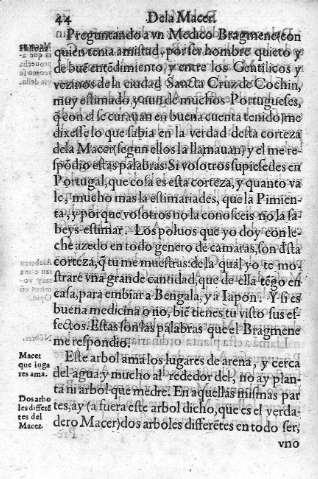 44 Dela Macer.
Preguntando a vn Medico Bragmene(con
quien tenia amistad, por ser hombre quieto y
de buē entēdimiento, y entre los Gentilicos y
vezinos de la ciudad Sancta Cruz de Cochin,
muy estimado y aun de muchos Portugueses,
q̄ con el se curauan en buena cuenta tenido) me
dixesse lo que sabia en la verdad desta corteza
dela Macer(segun ellos la llamauan) y el me re-
spōdio estas palabras: Si vosotros supiesedes en
Portugal, que cosa es esta corteza, y quanto va
le, mucho mas la estimariades, que la Pimien-
ta, y porque vosotros no la conosceis no la sa-
beys estimar. Los poluos que yo doy con le-
che azedo en todo genero de camaras, son dsta
corteza, q̄ tu me muestras: de la qual yo te mo-
strare vna grande cantidad, que de ella tēgo en
casa, para embiar a Bengala, y a Iapon. Y si es
buena medicina o no, biē tienes tu visto sus ef-
fectos. Estas son las palabras que el Bragmene
me respondio.
Macer
que luga
res ama.
Este arbol ama los lugares de arena, y cerca
del agua: y mucho al rededor del, no ay plan-
ta ni arbol que medre. En aquellas mismas par
tes, ay (a fuera este arbol dicho, que es el verda-
dero Macer) dos arboles differētes en todo ser,
Dos arbo
les differē
tes del
Macer.
vno